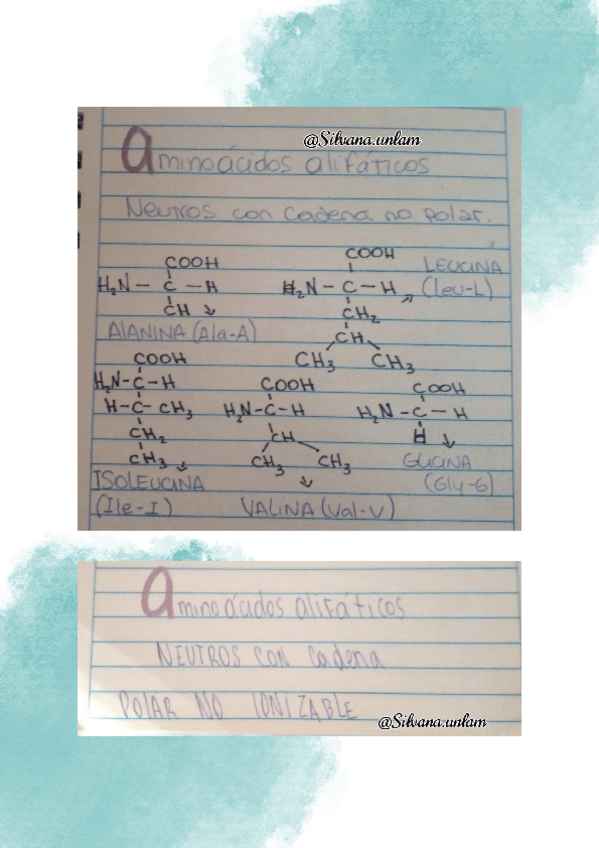 @Silvana.unlam
Aminoácidos alifáticos
Neutros con cadena no polar.
COOH
H₂N – C – H
CH
ALANINA (Ala-A)
COOH
H₂N – C – H
CH₂
CH
CH₃ CH₃
LEUCINA
(leu-L)
COOH
H₂N-C-H
H-C-CH₃
CH₂
CH₃
ISOLEUCINA
(Ile-I)
COOH
H₂N-C-H
CH
CH₃ CH₃
VALINA (Val-V)
COOH
H₂N – C – H
H
GLICINA
(Gly-G)
Aminoácidos alifáticos
NEUTROS CON Cadena
POLAR NO IONIZABLE
@Silvana.unlam